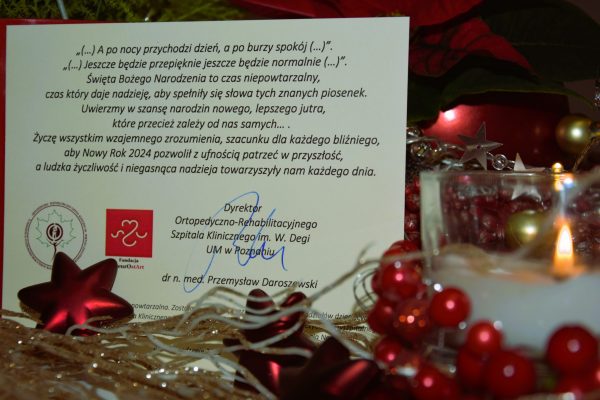 „(...) A po nocy przychodzi dzień, a po burzy spokój (...)”.
„(...) Jeszcze będzie przepięknie jeszcze będzie normalnie (...)”.
Święta Bożego Narodzenia to czas niepowtarzalny,
czas który daje nadzieję, aby spełniły się słowa tych znanych piosenek.
Uwierzmy w szansę narodzin nowego, lepszego jutra,
które przecież zależy od nas samych... .
Życzę wszystkim wzajemnego zrozumienia, szacunku dla każdego bliźniego,
aby Nowy Rok 2024 pozwolił z ufnością patrzeć w przyszłość,
a ludzka życzliwość i niegasnąca nadzieja towarzyszyły nam każdego dnia.
Dyrektor
Ortopedyczno-Rehabilitacyjnego
Szpitala Klinicznego im. W. Degi
UM w Poznaniu
dr n. med. Przemysław Daroszewski
Fundacja